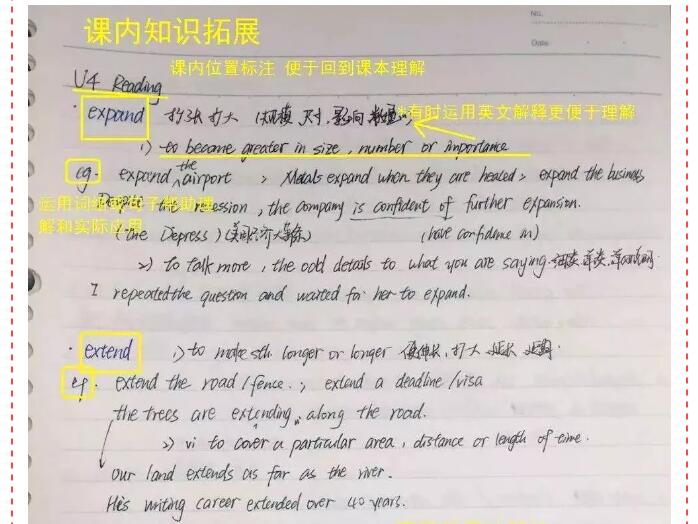 课内知识拓展
NO.
Date.
课内位置标注 便于回到课本理解
U4 Reading
· expand 扩张 扩大 (规模 尺寸, 影响 *有时运用英文解释更便于理解
1) to become greater in size, number or importance
eg. expand the airport ; Metals expand when they are heated; expand the business
运用词组或句子帮助理解和实际应用
the recession, the company is confident of further expansion.
(the Depress) (have confidence in)
2) to talk more, the odd details to what you are saying.
I repeated the question and waited for her to expand.
· extend 1) to make sth longer or longer 使伸长, 扩大 延长
eg. extend the road/fence.; extend a deadline/visa
the trees are extending along the road.
2) vi to cover a particular area, distance or length of time.
Our land extends as far as the river.
He's writing career extended over 40 years.